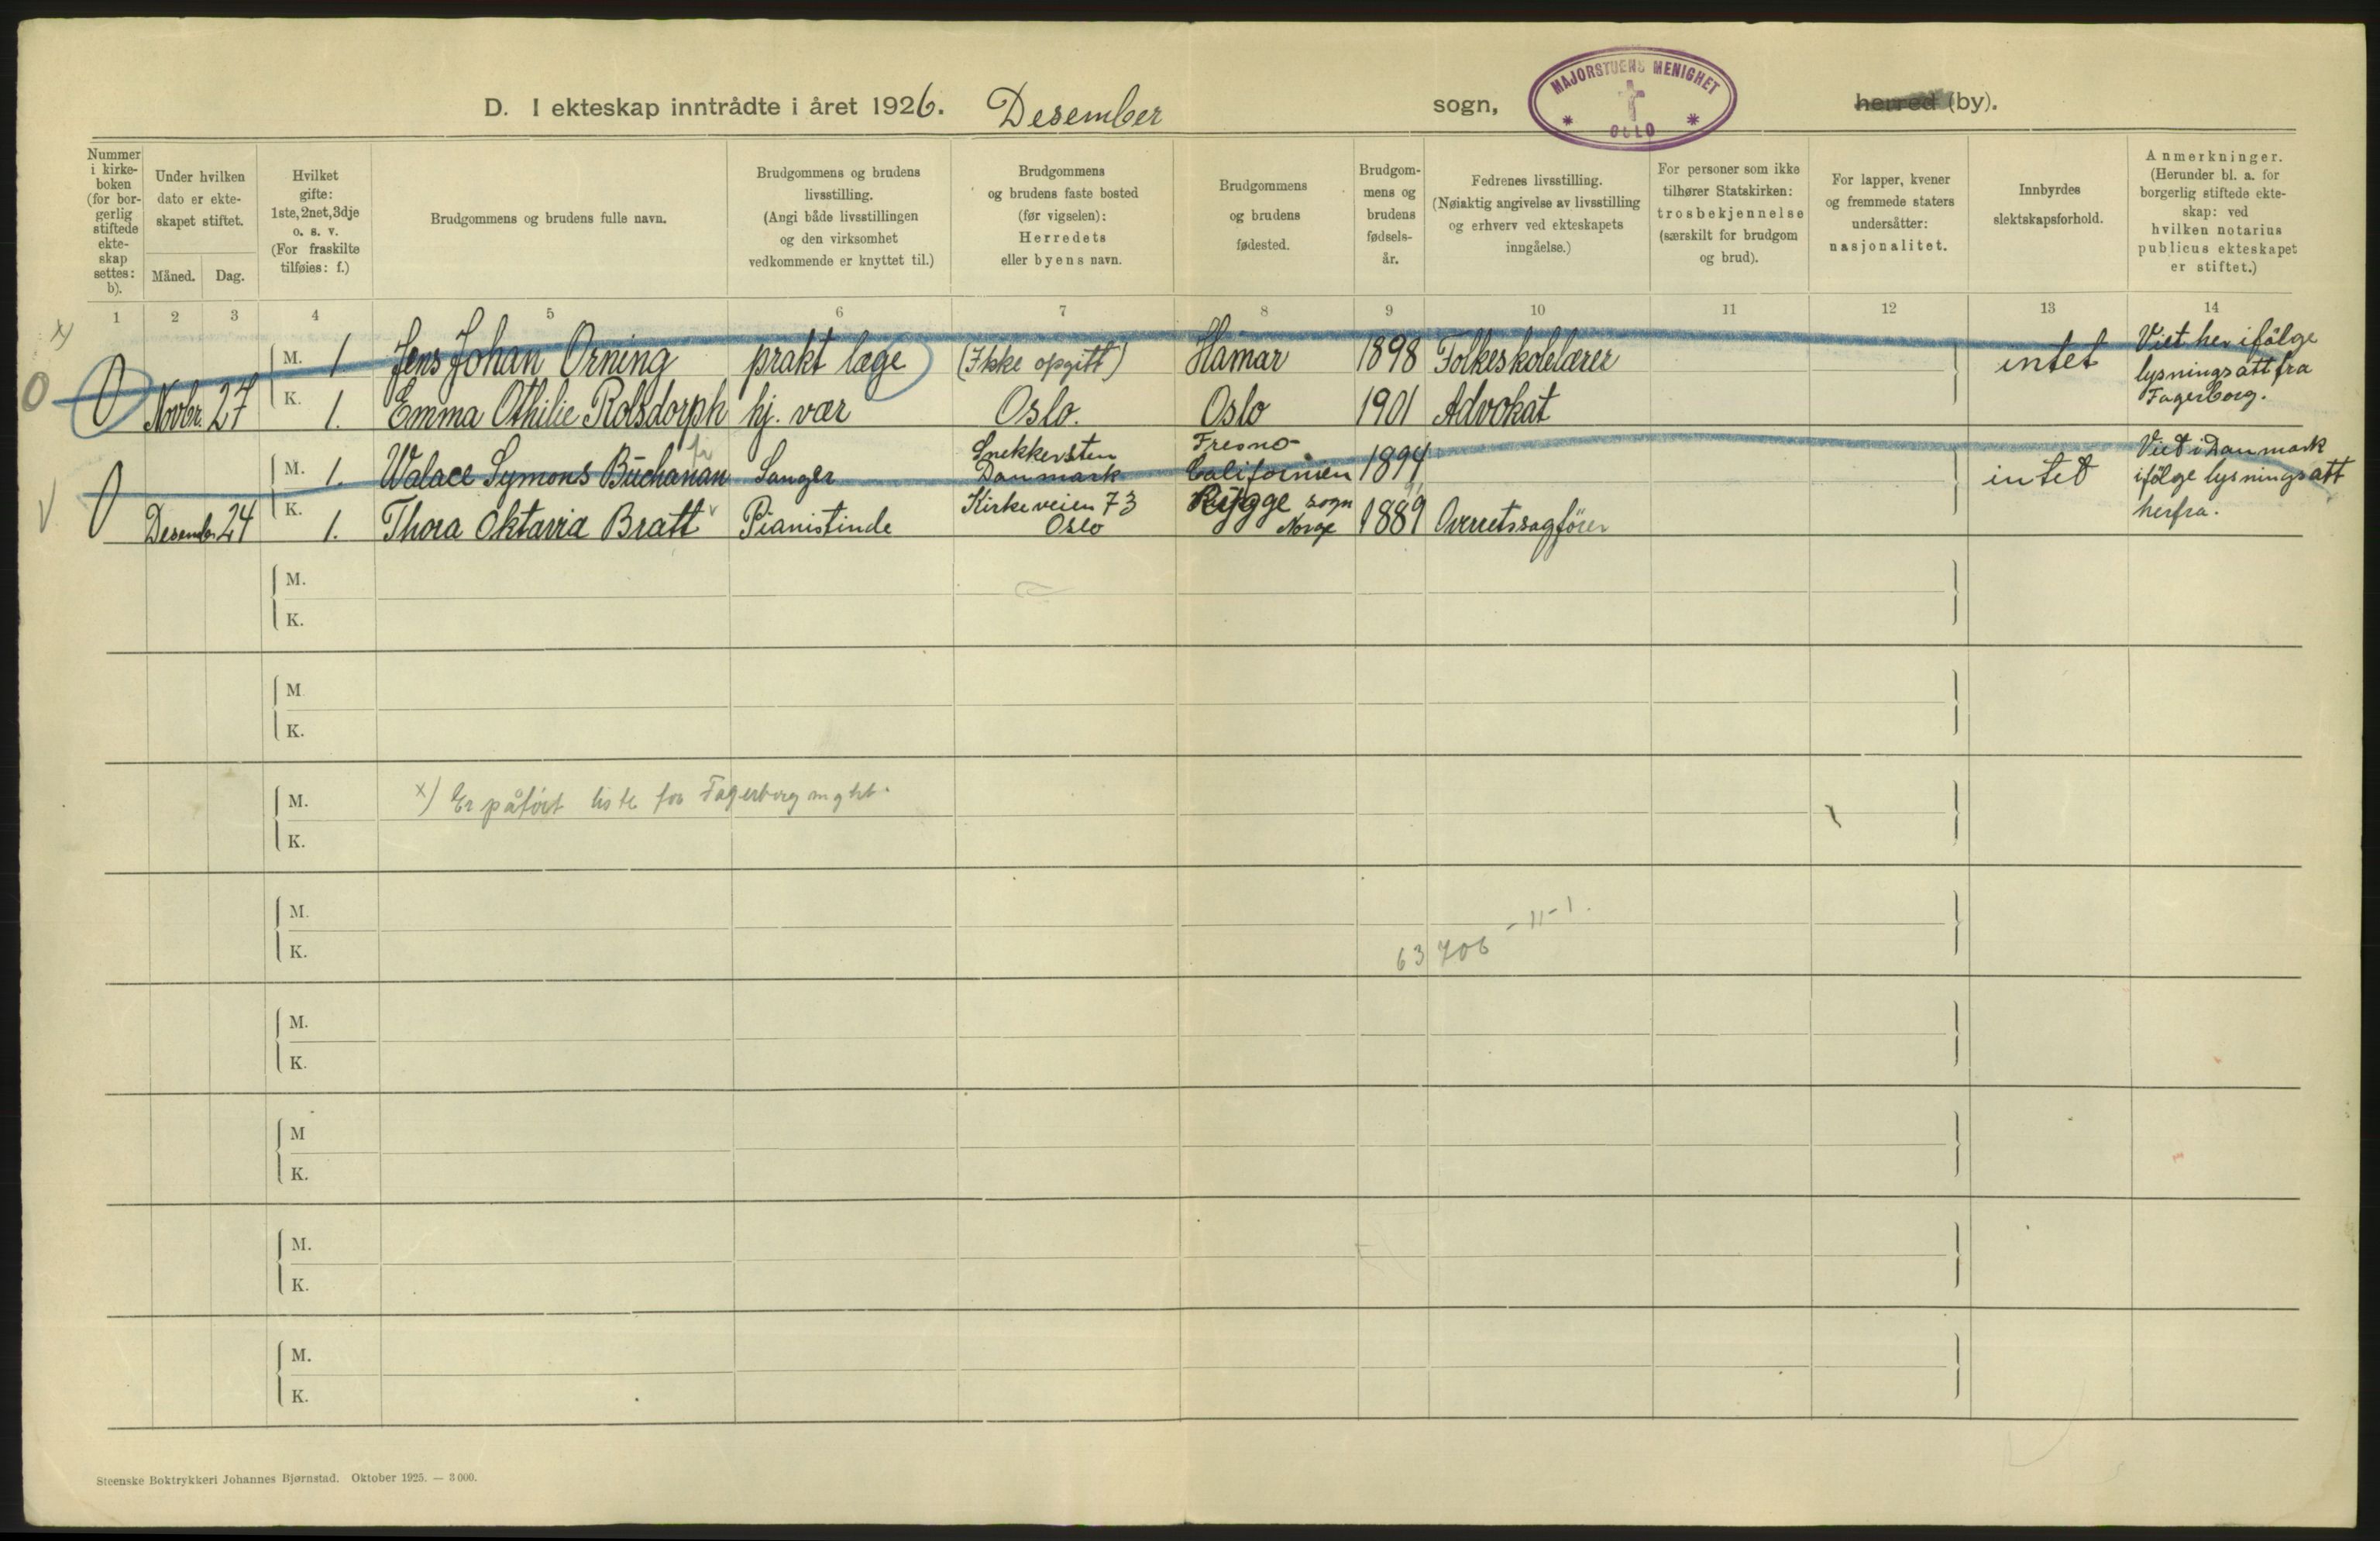 D. I ekteskap inntrådte i året 1926. Desember sogn, herred (by).
MAJORSTUENS MENIGHET
* OSLO *
Nummer i kirke-boken (for bor-gerlig stiftede ekte-skap settes: b).
Under hvilken dato er ekte-skapet stiftet.
Måned. Dag.
Hvilket gifte: 1ste, 2net, 3dje o. s. v. (For fraskilte tilføies: f.)
Brudgommens og brudens fulle navn.
Brudgommens og brudens livsstilling. (Angi både livsstillingen og den virksomhet vedkommende er knyttet til.)
Brudgommens og brudens faste bosted (før vigselen): Herredets eller byens navn.
Brudgommens og brudens fødested.
Brudgom-mens og brudens fødsels-år.
Fedrenes livsstilling. (Nøiaktig angivelse av livsstilling og erhverv ved ekteskapets inngåelse.)
For personer som ikke tilhører Statskirken: trosbekjennelse (særskilt for brudgom og brud).
For lapper, kvener og fremmede staters undersåtter: nasjonalitet.
Innbyrdes slektskapsforhold.
Anmerkninger. (Herunder bl. a. for borgerlig stiftede ekte-skap: ved hvilken notarius publicus ekteskapet er stiftet.)
1 2 3 4 5 6 7 8 9 10 11 12 13 14
x)
M. 1 Jens Johan Orning prakt læge (Ikke opgitt) Hamar 1898 Folkeskolelærer intet Viet her ifölge lysningsatt fra Fagerborg.
0 0 Novbr. 27 K. 1. Emma Othilie Rolsdorph hj. vær Oslo. Oslo 1901 Advokat
M. 1. Walace Symons Buchanan Sanger Snekkersten Danmark Fresno Californien 1894 intet Viet i Danmark ifölge lysningsatt herfra.
V 0 Desembr. 24 K. 1. Thora Oktavia Bratt v Pianistinde Kirkeveien 73 Oslo Rygge sogn Norge 1889 Overretssagfører
M.
K.
M.
K.
M. x) Er påført liste for Fagerborg mght.
K.
M. 63706 - 11-1.
K.
M.
K.
M
K.
M.
K.
M.
K.
Steenske Boktrykkeri Johannes Bjørnstad. Oktober 1925. — 3 000.